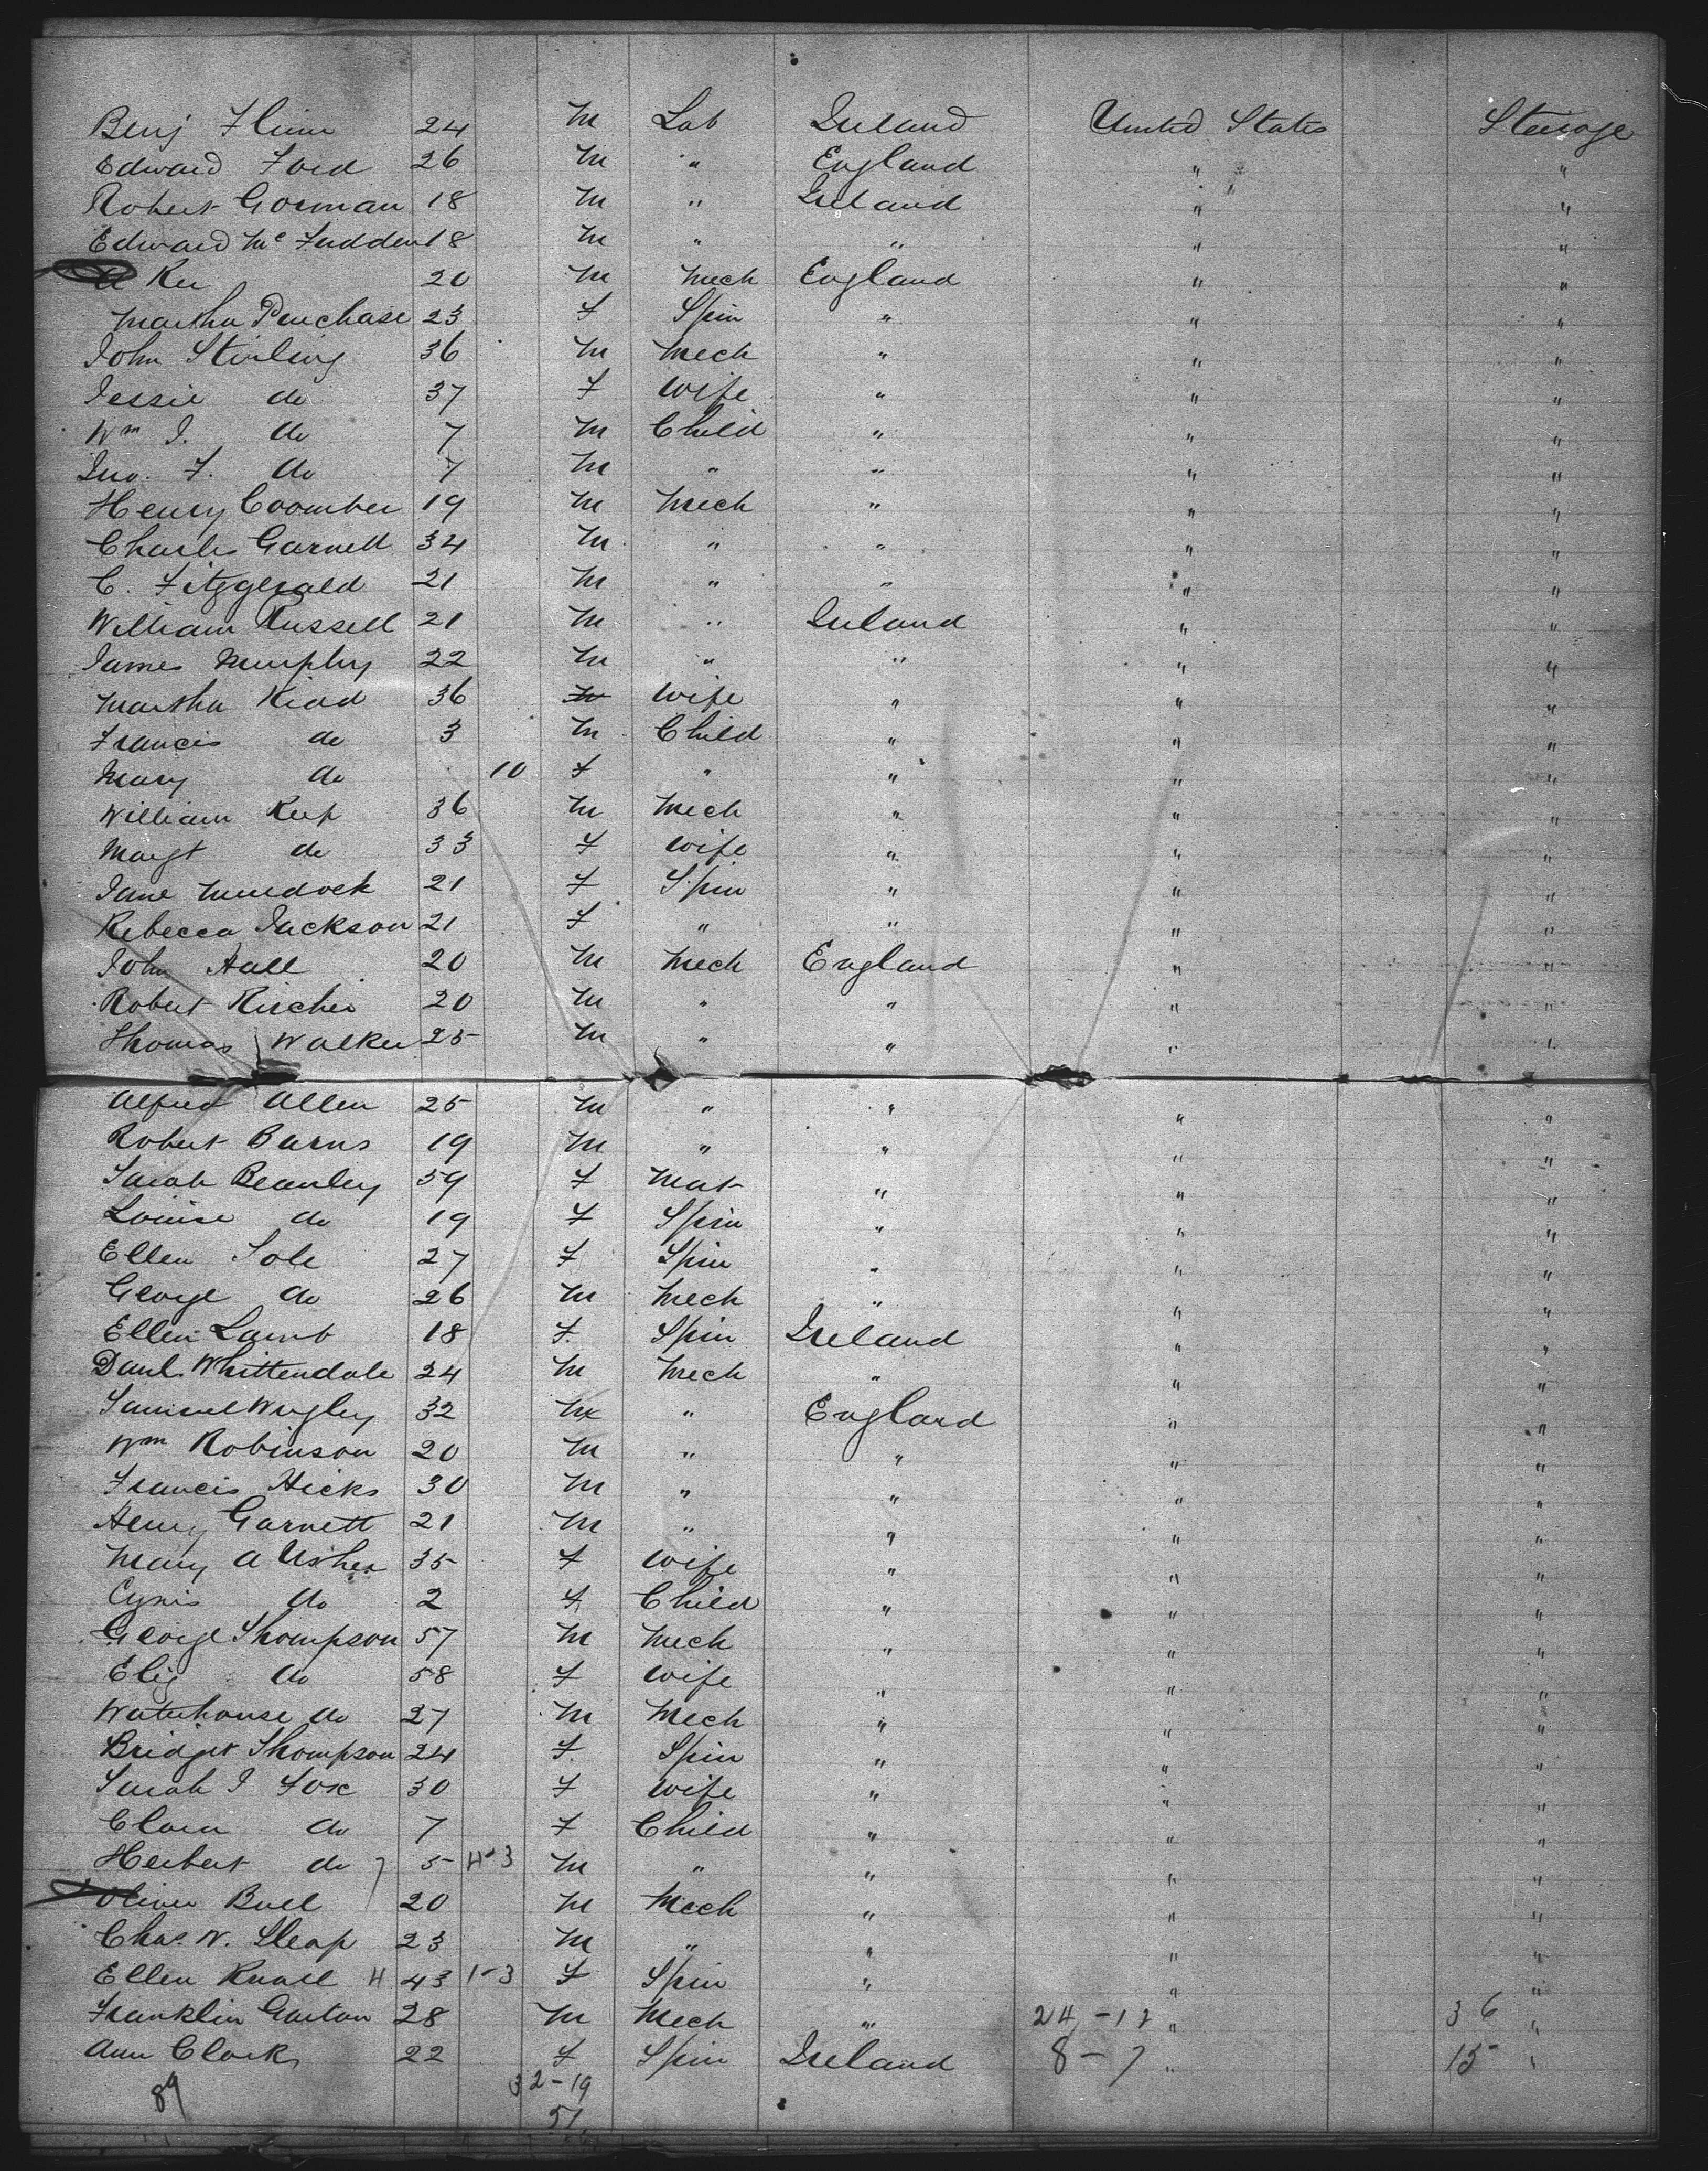 Benj Flinn 24 M Lab Ireland United States Steerage
Edward Ford 26 M " England " "
Robert Gorman 18 M " Ireland " "
Edward Mc Fadden 18 M " " " "
A Ker 20 M Mech England " "
Martha Purchase 23 F Spin " " "
John Stirling 36 M Mech " " "
Jessie do 37 F Wife " " "
Wm J. do 7 M Child " " "
Jno. F. do 7 M " " " "
Henry Coomber 19 M Mech " " "
Charles Garnett 34 M " " " "
C. Fitzgerald 21 M " " " "
William Russell 21 M " Ireland " "
James Murphy 22 M " " " "
Martha Kidd 36 M Wife " " "
Francis do 3 M Child " " "
Mary do 10 F " " " "
William Keep 36 M Mech " " "
Margt do 33 F Wife " " "
Jane Murdock 21 F Spin " " "
Rebecca Jackson 21 F " " " "
John Hall 20 M Mech England " "
Robert 20 M " " " "
Thomas Walker 25 M " " " "
Alfred Allen 25 M " " " "
Robert Burns 19 M " " " "
Sarah Beanley 59 F Mat " " "
Louise do 19 F Spin " " "
Ellen Sole 27 F Spin " " "
George do 26 M Mech " " "
Ellen Lamb 18 F. Spin Ireland " "
Danl. Whittendale 24 M Mech " " "
Samuel Wrigley 32 M " England " "
Wm Robinson 20 M " " " "
Francis Hicks 30 M " " " "
Henry Garnett 21 M " " " "
Mary A Usher 35 F Wife " " "
Cyris do 2 F Child " " "
George Thompson 57 M Mech " " "
Eliz do 58 F Wife " " "
Waterhouse do 27 M Mech " " "
Bridget Thompson 24 F. Spin " " "
Sarah J Fox 30 F Wife " " "
Clara do 7 F Child " " "
Herbert do 7 5 H-3 M " " " "
Oliver Bull 20 M Mech " " "
Chas. W. Sleap 23 M " " " "
Ellen H 43 1-3 F Spin " " "
Franklin Garton 28 M Mech " 24-12 " 36 "
Ann Clark 22 F Spin Ireland 8-7 " 15 "
89 32-19
51